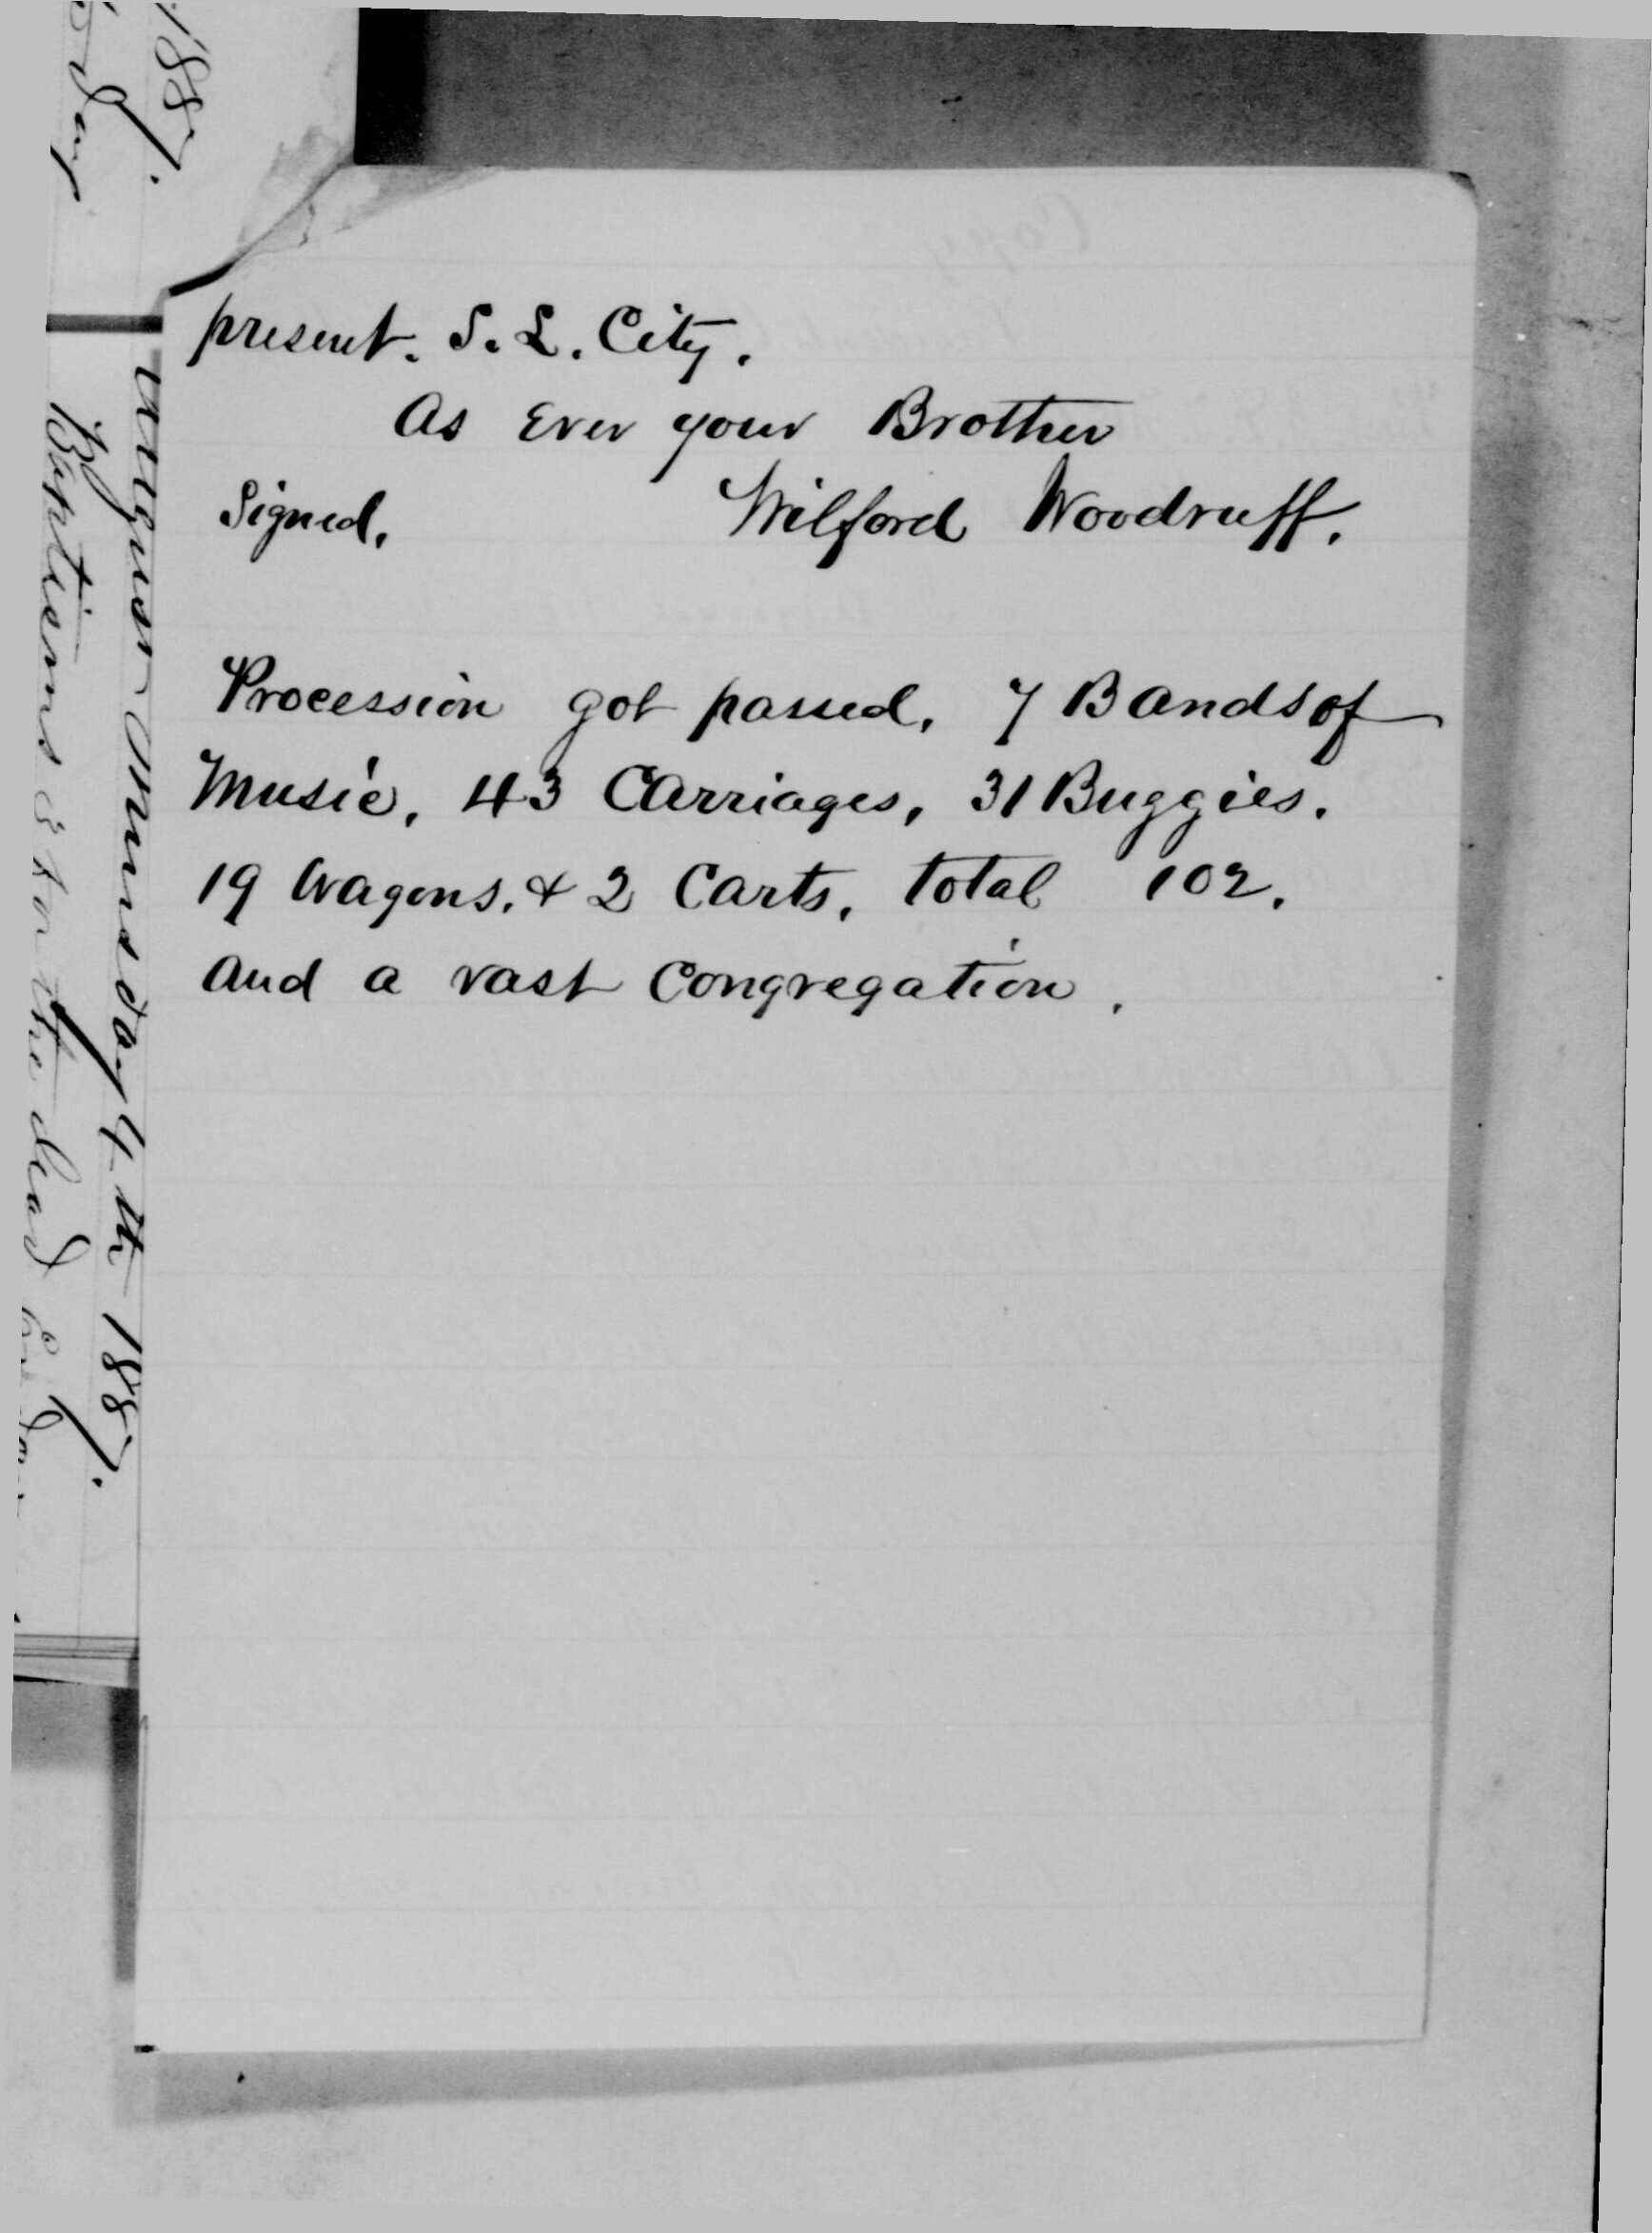 present. S. L. City.
As Ever your Brother
Signed, Wilford Woodruff.
Procession got passed, 7 Bands of
Music, 43 Carriages, 31 Buggies.
19 Wagons. & 2 Carts, total 102.
And a vast Congregation.
1887.
day
August Thursday 4th 1887.
Baptisms & for the dead